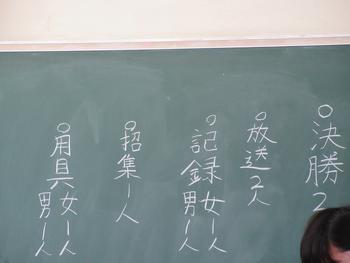 ○決勝2
○放送2人
○記録女1人
男1人
○招集1人
○用具女1人
男1人